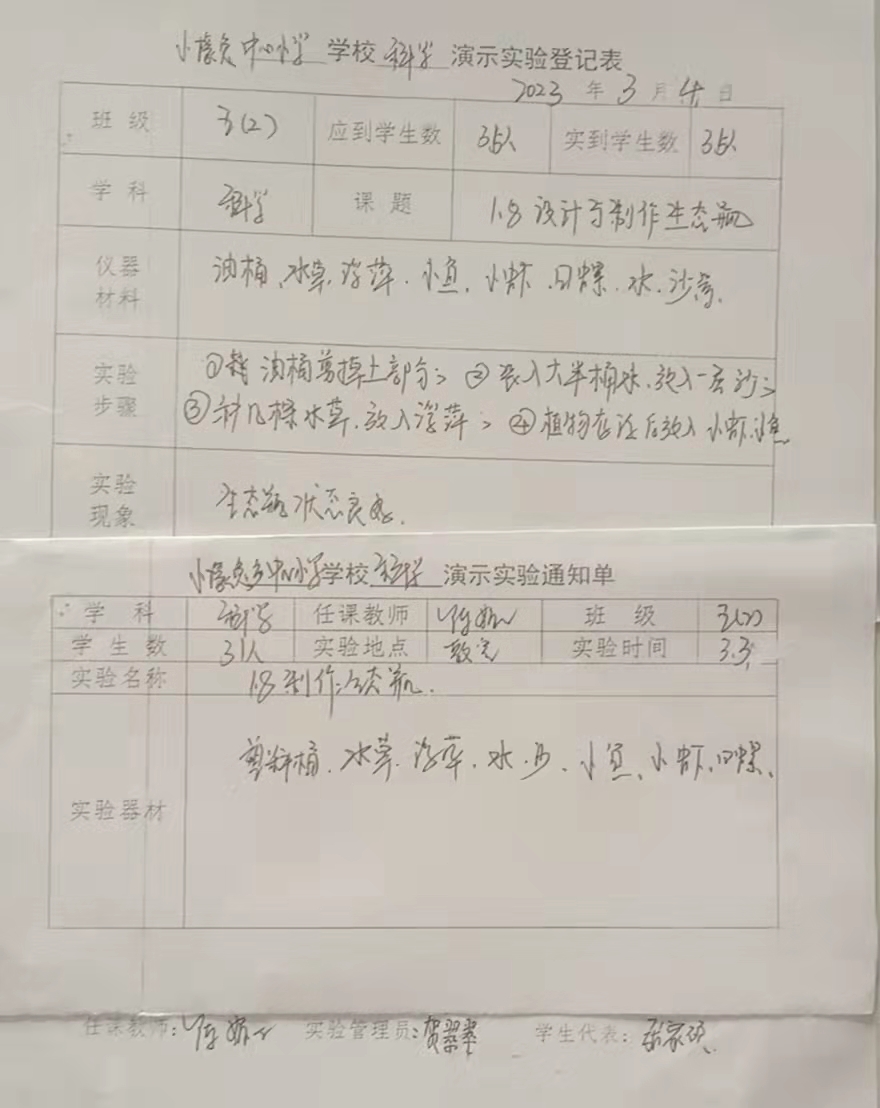 中心小学 学校 科学 演示实验登记表
2023 年 3 月 4 日
班 级 五(2) 应到学生数 35人 实到学生数 35人
学 科 科学 课 题 1.8 设计与制作生态瓶
仪器
材料
油桶、水草、浮萍、小鱼、小虾、田螺、水、沙
实验
步骤
①将油桶剪掉上部分; ②装入大半桶水,放入一层沙;
③种几棵水草,放入浮萍; ④植物存活后放入小虾、小鱼
实验
现象
生态瓶状态良好.
中心小学学校 科学 演示实验通知单
学 科 科学 任课教师 班 级 五(2)
学 生 数 31人 实验地点 教室 实验时间 3.3
实验名称 1.8 制作生态瓶.
实验器材
塑料桶、水草、浮萍、水、沙、小鱼、小虾、田螺、
任课教师: 实验管理员:贺翠翠 学生代表: